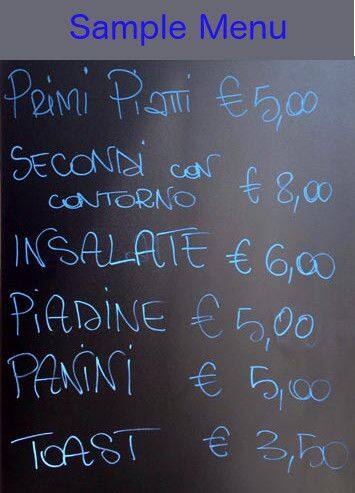 Sample Menu
PRIMI PIATTI € 5,00
SECONDI CON
CONTORNO € 8,00
INSALATE € 6,00
PIADINE € 5,00
PANINI € 5,00
TOAST € 3,50